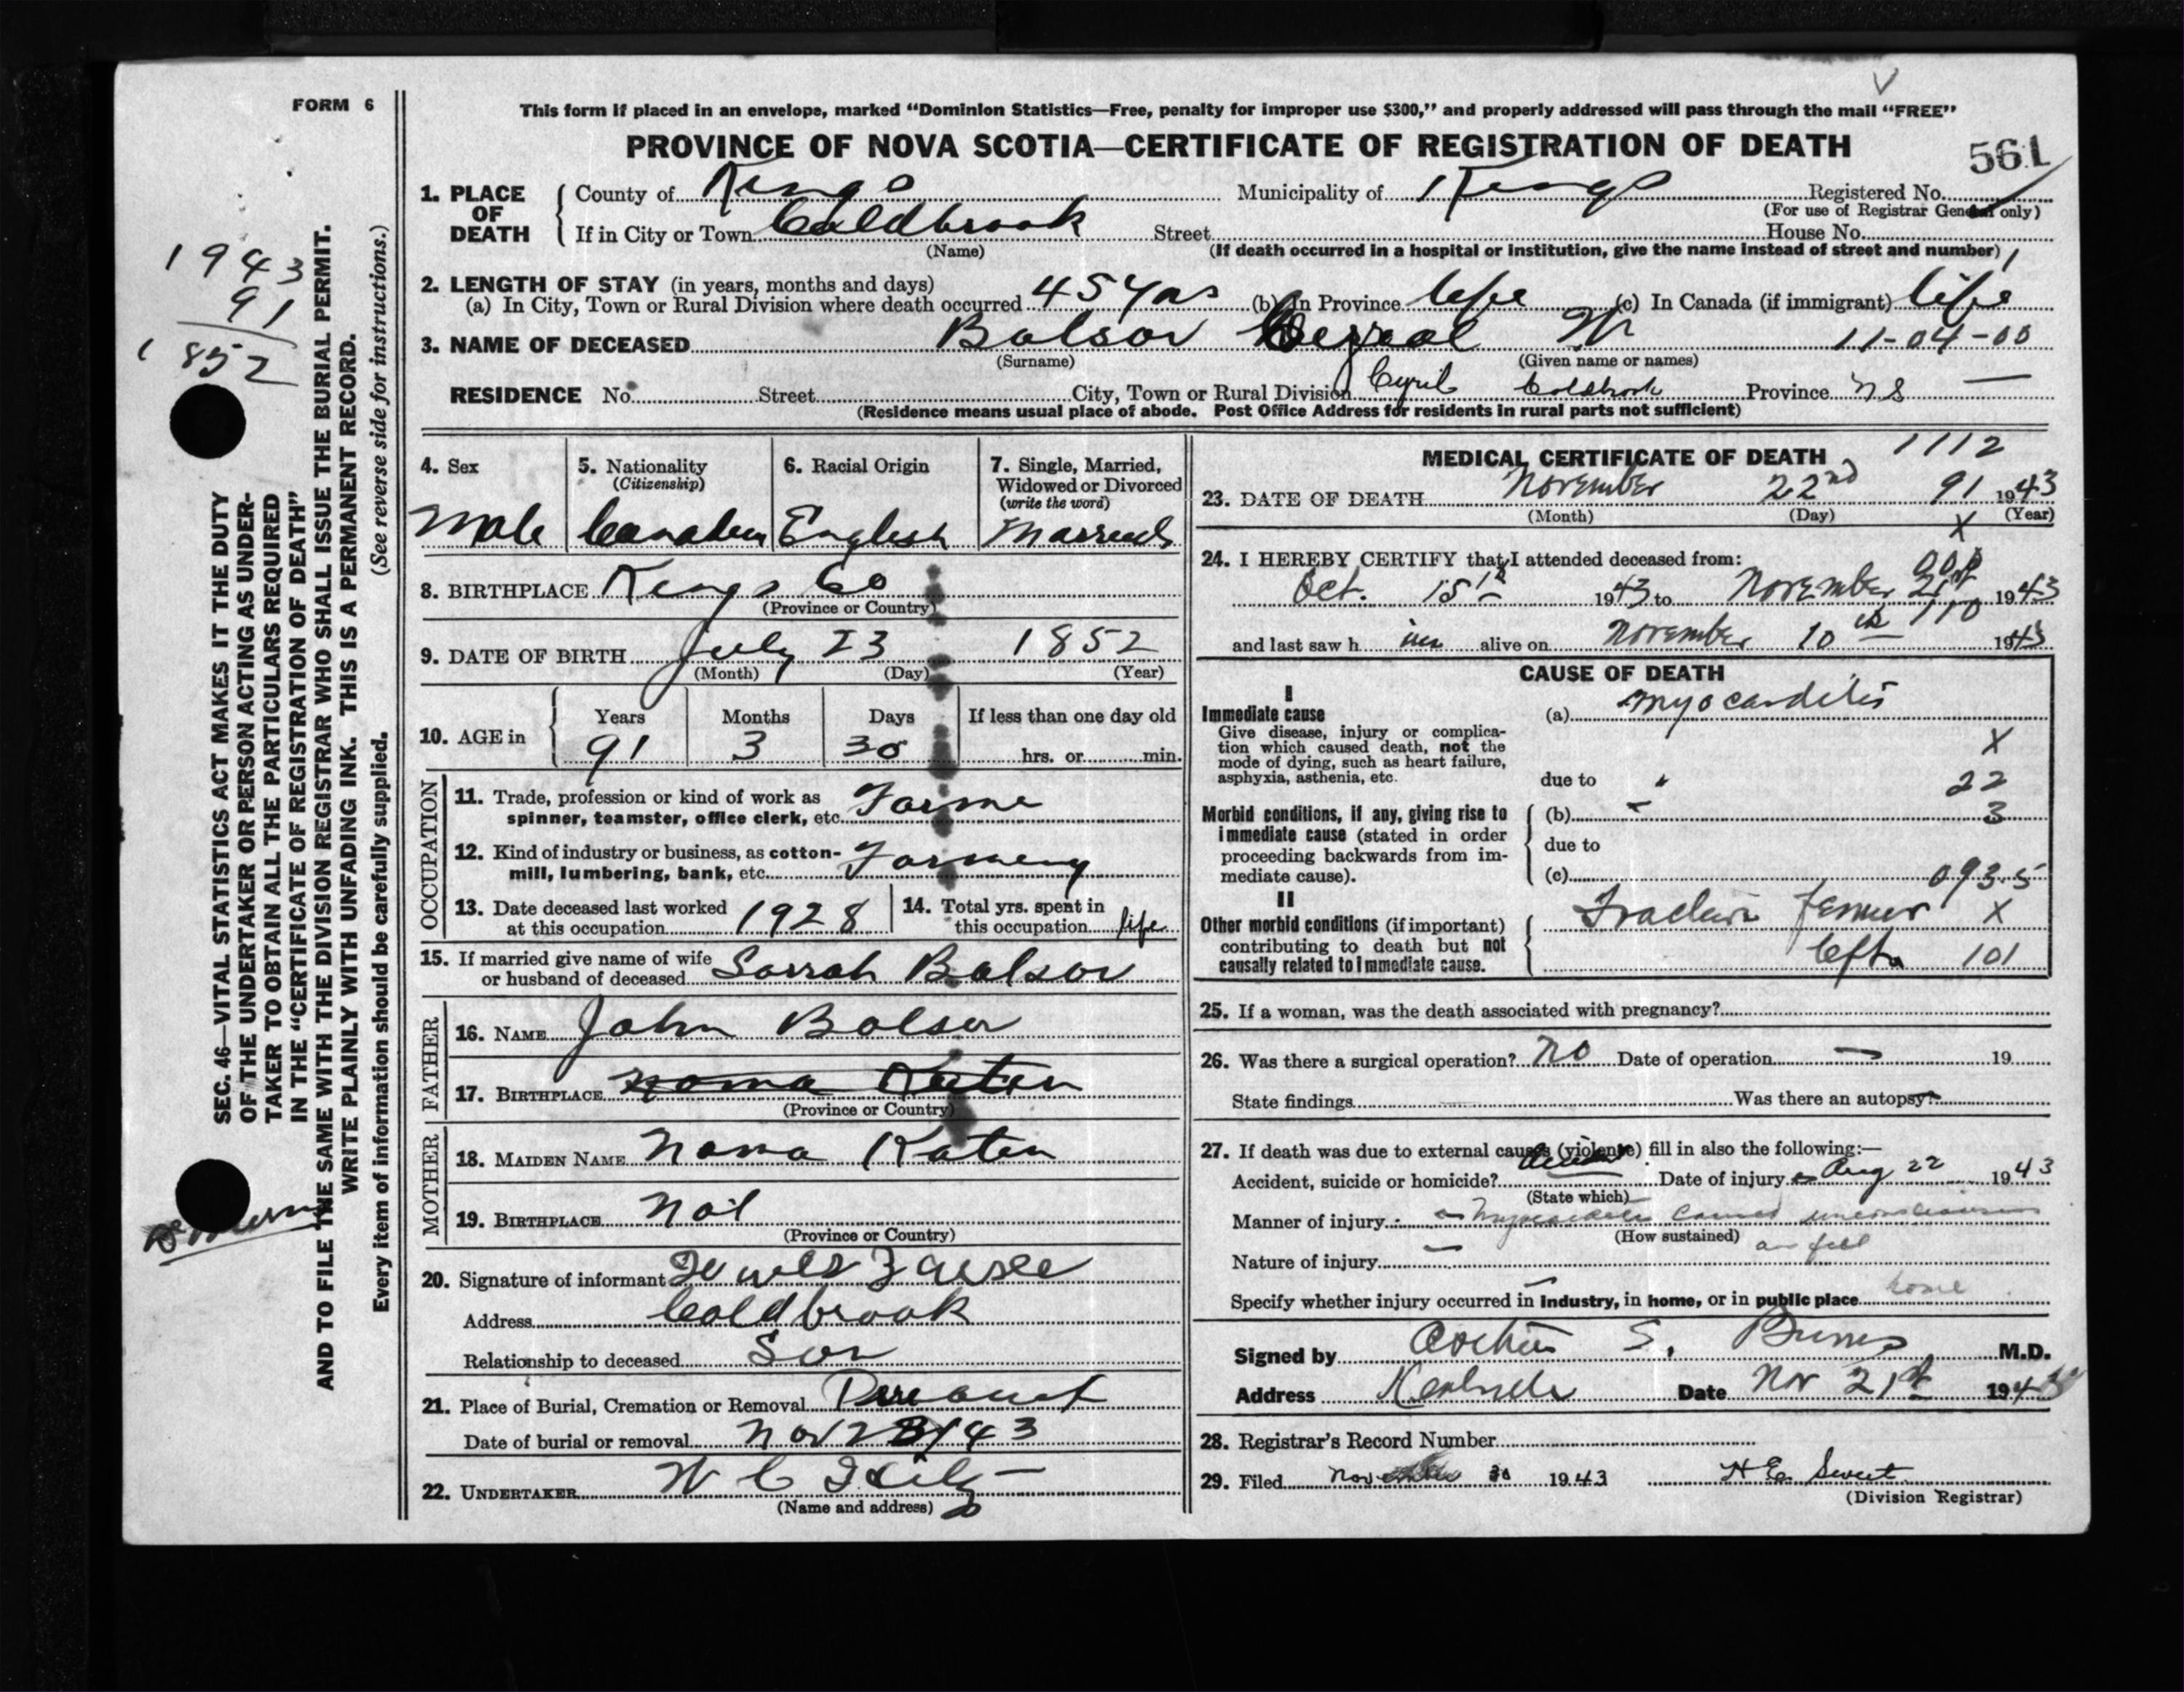 FORM 6
This form if placed in an envelope, marked “Dominion Statistics—Free, penalty for improper use $300,” and properly addressed will pass through the mail “FREE”
PROVINCE OF NOVA SCOTIA—CERTIFICATE OF REGISTRATION OF DEATH
561
1. PLACE OF DEATH
County of Kings Municipality of Kings Registered No.
(For use of Registrar General only)
If in City or Town Coldbrook Street House No.
(Name) (If death occurred in a hospital or institution, give the name instead of street and number)
2. LENGTH OF STAY (in years, months and days)
(a) In City, Town or Rural Division where death occurred 45 yrs (b) In Province life (c) In Canada (if immigrant) life
3. NAME OF DECEASED Balsor W 11-04-00
(Surname) (Given name or names)
Cyril
RESIDENCE No. Street City, Town or Rural Division Coldbrook Province NS —
(Residence means usual place of abode. Post Office Address for residents in rural parts not sufficient)
1943
91
1852
SEC. 46—VITAL STATISTICS ACT MAKES IT THE DUTY
OF THE UNDERTAKER OR PERSON ACTING AS UNDER-
TAKER TO OBTAIN ALL THE PARTICULARS REQUIRED
IN THE “CERTIFICATE OF REGISTRATION OF DEATH”
AND TO FILE THE SAME WITH THE DIVISION REGISTRAR WHO SHALL ISSUE THE BURIAL PERMIT.
WRITE PLAINLY WITH UNFADING INK. THIS IS A PERMANENT RECORD.
Every item of information should be carefully supplied. (See reverse side for instructions.)
4. Sex
Male
5. Nationality
(Citizenship)
Canadian
6. Racial Origin
English
7. Single, Married,
Widowed or Divorced
(write the word)
Married
8. BIRTHPLACE Kings Co
(Province or Country)
9. DATE OF BIRTH July 23 1852
(Month) (Day) (Year)
10. AGE in
Years Months Days If less than one day old
91 3 30 hrs. or min.
OCCUPATION
11. Trade, profession or kind of work as
spinner, teamster, office clerk, etc. Farme
12. Kind of industry or business, as cotton-
mill, lumbering, bank, etc. Farmeng
13. Date deceased last worked
at this occupation 1928
14. Total yrs. spent in
this occupation life
15. If married give name of wife
or husband of deceased Sarrah Balsor
FATHER
16. NAME John Balsor
17. BIRTHPLACE
(Province or Country)
MOTHER
18. MAIDEN NAME Noma Katen
19. BIRTHPLACE Not
(Province or Country)
20. Signature of informant
Address Coldbrook
Relationship to deceased Son
21. Place of Burial, Cremation or Removal
Date of burial or removal Nov 23/43
22. UNDERTAKER W C
(Name and address)
MEDICAL CERTIFICATE OF DEATH 1112
23. DATE OF DEATH November 22nd 91 1943
(Month) (Day) (Year)
X
24. I HEREBY CERTIFY that I attended deceased from:
Oct. 15th 1943 to November 21st 1943
110
and last saw h im alive on November 10th 1943
CAUSE OF DEATH
I
Immediate cause
Give disease, injury or complica-
tion which caused death, not the
mode of dying, such as heart failure,
asphyxia, asthenia, etc.
(a) Myocarditis
X
due to 22
Morbid conditions, if any, giving rise to
immediate cause (stated in order
proceeding backwards from im-
mediate cause).
(b) 3
due to
(c) 093.5
II
Other morbid conditions (if important)
contributing to death but not
causally related to immediate cause.
Fracture femur X
left 101
25. If a woman, was the death associated with pregnancy?
26. Was there a surgical operation? No Date of operation — 19
State findings Was there an autopsy?
27. If death was due to external causes (violence) fill in also the following:—
Accident, suicide or homicide? Date of injury Aug 22 1943
(State which)
Manner of injury Myocarditis caused
(How sustained) a fall
Nature of injury —
Specify whether injury occurred in industry, in home, or in public place home
Signed by S. Burns M.D.
Address Kentville Date Nov 21st 1943
28. Registrar's Record Number
29. Filed November 30 1943 H E Sweet
(Division Registrar)